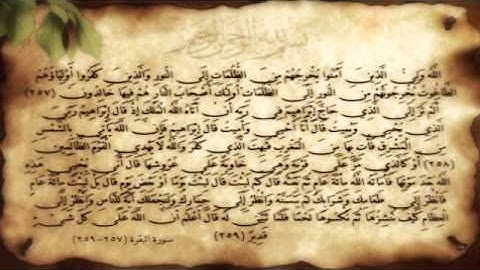 بسم الله الرحمن الرحيم
الله ولي الذين آمنوا يخرجهم من الظلمات إلى النور والذين كفروا أولياؤهم
الطاغوت يخرجونهم من النور إلى الظلمات أولئك أصحاب النار هم فيها خالدون (٢٥٧)
ألم تر إلى الذي حاج إبراهيم في ربه أن آتاه الله الملك إذ قال إبراهيم ربي
الذي يحيي ويميت قال أنا أحيي وأميت قال إبراهيم فإن الله يأتي بالشمس
من المشرق فأت بها من المغرب فبهت الذي كفر والله لا يهدي القوم الظالمين
(٢٥٨) أو كالذي مر على قرية وهي خاوية على عروشها قال أنى يحيي هذه
الله بعد موتها فأماته الله مئة عام ثم بعثه قال كم لبثت قال لبثت يوما أو بعض يوم قال بل لبثت مئة عام
فانظر إلى طعامك وشرابك لم يتسنه وانظر إلى حمارك ولنجعلك آية للناس وانظر إلى
العظام كيف ننشزها ثم نكسوها لحما فلما تبين له قال أعلم أن الله على كل شيء
قدير (٢٥٩)
سورة البقرة (٢٥٧-٢٥٩)